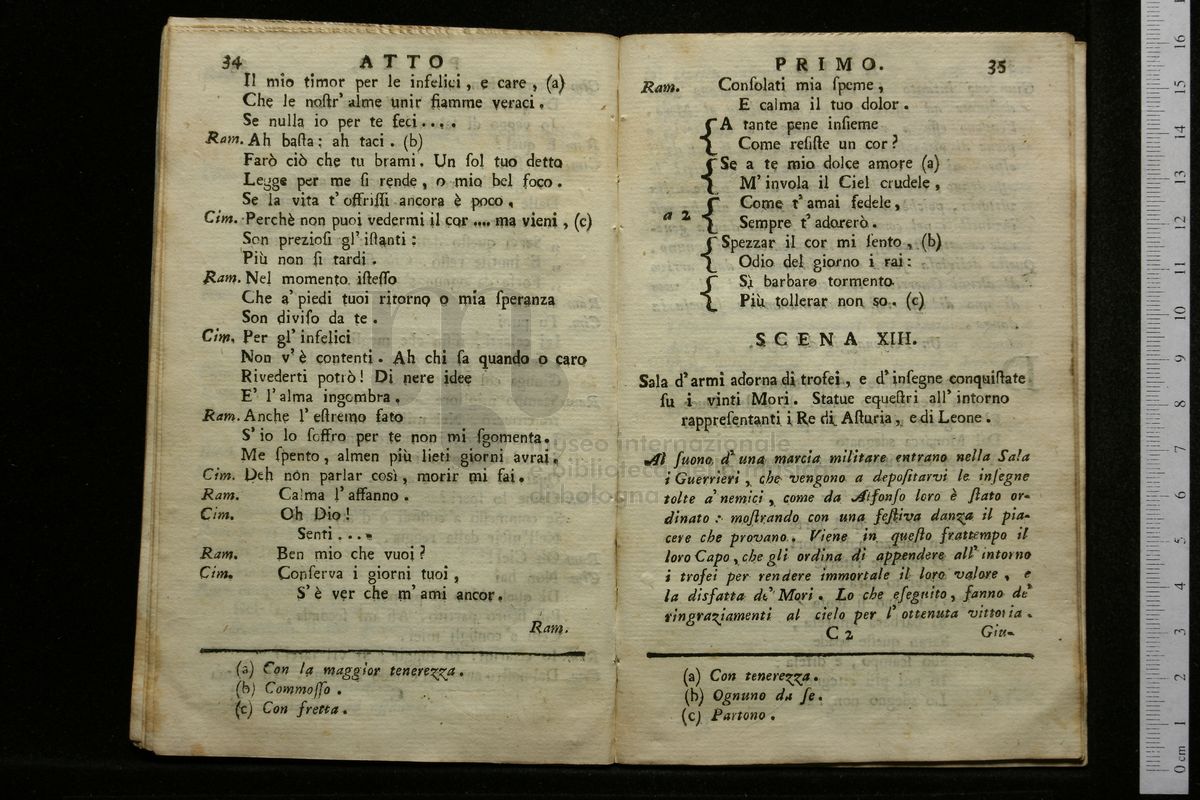 34 ATTO
Il mio timor per le infelici, e care, (a)
Che le noſtr' alme unir fiamme veraci.
Se nulla io per te feci....
Ram. Ah baſta: ah taci. (b)
Farò ciò che tu brami. Un ſol tuo detto
Legge per me ſi rende, o mio bel foco.
Se la vita t' offriſſi ancora è poco.
Cim. Perchè non puoi vedermi il cor .... ma vieni, (c)
Son prezioſi gl' iſtanti:
Più non ſi tardi.
Ram. Nel momento iſteſſo
Che a' piedi tuoi ritorno o mia ſperanza
Son diviſo da te.
Cim. Per gl' infelici
Non v' è contenti. Ah chi ſa quando o caro
Rivederti potrò! Di nere idee
E' l' alma ingombra.
Ram. Anche l' eſtremo fato
S' io lo ſoffro per te non mi ſgomenta.
Me ſpento, almen più lieti giorni avrai.
Cim. Deh non parlar così, morir mi fai.
Ram. Calma l' affanno.
Cim. Oh Dio!
Senti....
Ram. Ben mio che vuoi?
Cim. Conſerva i giorni tuoi,
S' è ver che m' ami ancor.
Ram.
(a) Con la maggior tenerezza.
(b) Commoſſo.
(c) Con fretta.
PRIMO. 35
Ram. Conſolati mia ſpeme,
E calma il tuo dolor.
A tante pene inſieme
Come reſiſte un cor?
Se a te mio dolce amore (a)
M' invola il Ciel crudele,
a 2 Come t' amai fedele,
Sempre t' adorerò.
Spezzar il cor mi ſento, (b)
Odio del giorno i rai:
Sì barbaro tormento
Più tollerar non so. (c)
SCENA XIII.
Sala d' armi adorna di trofei, e d' inſegne conquiſtate
ſu i vinti Mori. Statue equeſtri all' intorno
rappreſentanti i Re di Aſturia, e di Leone.
Al ſuono d' una marcia militare entrano nella Sala
i Guerrieri, che vengono a depoſitarvi le inſegne
tolte a' nemici, come da Alfonſo loro è ſtato or-
dinato: moſtrando con una feſtiva danza il pia-
cere che provano. Viene in queſto frattempo il
loro Capo, che gli ordina di appendere all' intorno
i trofei per rendere immortale il loro valore, e
la disfatta de' Mori. Lo che eſeguito, fanno de'
ringraziamenti al cielo per l' ottenuta vittoria.
C 2 Giu-
(a) Con tenerezza.
(b) Ognuno da ſe.
(c) Partono.
museo internazionale
biblioteca della musica
di bologna
0 cm 1 2 3 4 5 6 7 8 9 10 11 12 13 14 15 16